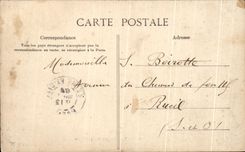 CARTE POSTALE
Correspondance
Tous les pays étrangers n'acceptent pas la
correspondance au verso, se renseigner à la Poste.
Mademoiselle S. Boirotte
Avenue du Chemin de
à Rueil
(S-et-O)